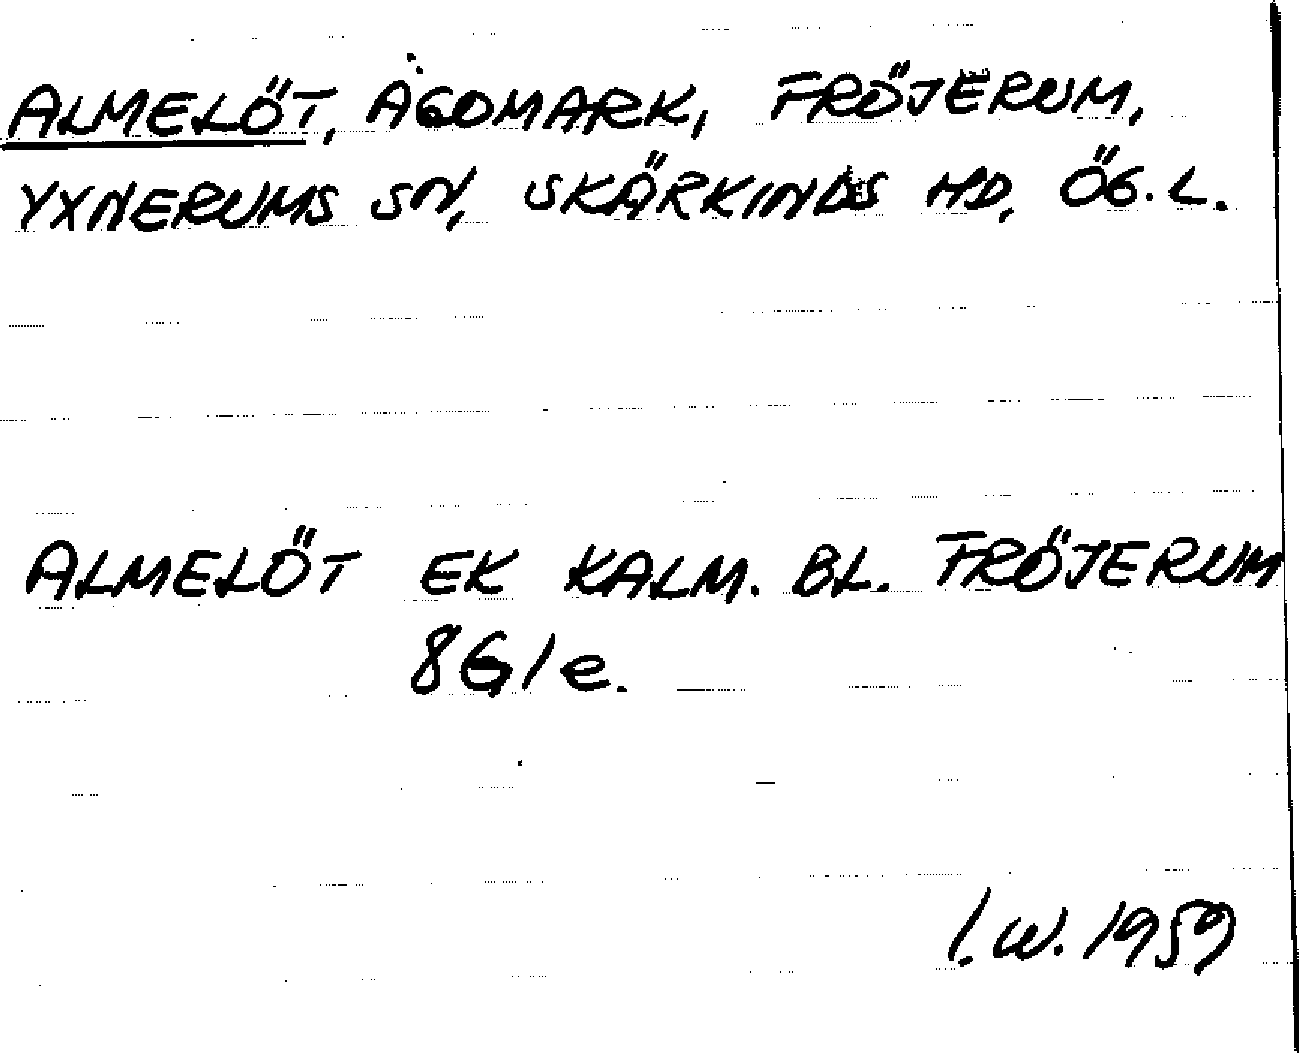 ALMELÖT, ÄGOMARK, FRÖJERUM,
YXNERUMS SN, SKÄRKINDS HD, ÖG.L.
ALMELÖT EK KALM. BL. FRÖJERUM
8G1e.
I.W. 1959